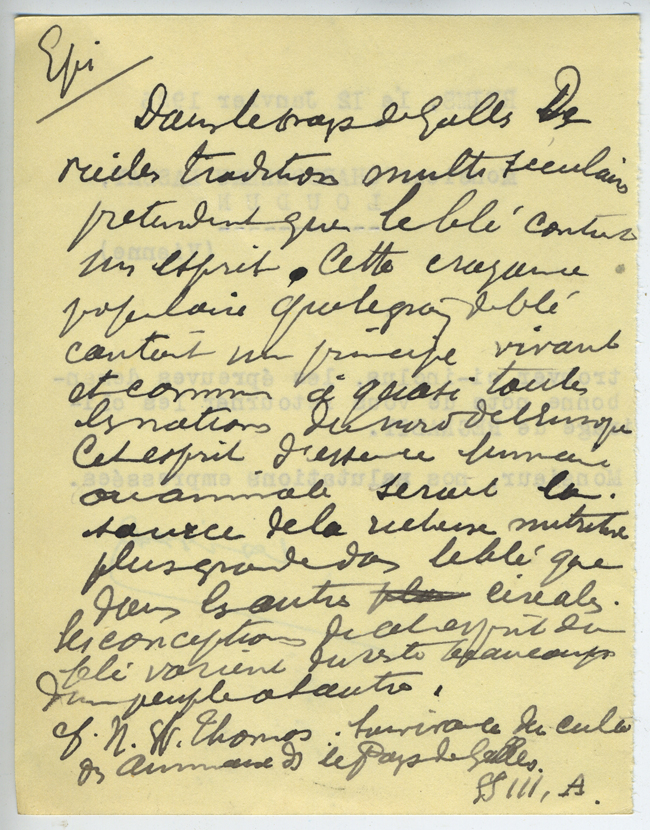 Epi
Dans le pays de Galles De
vieilles traditions multiséculaires
prétendent que le blé contient
un esprit. Cette croyance
populaire que le grain de blé
contient un principe vivant
est commun à quasi toutes
les nations du nord de l'Europe
Cet esprit d'essence humaine
ou animale serait la
source de la richesse nutritive
plus grande dans le blé que
dans les autres céréales.
Les conceptions de cet esprit du
blé varient du reste beaucoup
d'un peuple à l'autre.
cf. N. W. Thomas. Survivance du culte
des animaux ds le Pays de Galles.
§§ III, A.